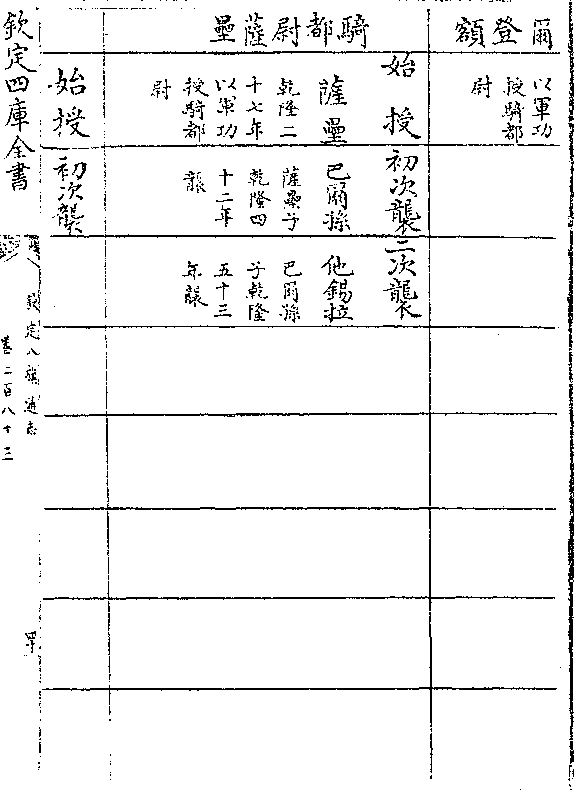 爾登額
以軍功
授騎都
尉
騎都尉薩壘
始授
薩壘
乾隆二
十七年
以軍功
授騎都
尉
初次襲
巴爾孫
薩壘子
乾隆四
十二年
襲
二次襲
他錫拉
巴爾孫
子乾隆
五十三
年襲
始授
初次襲
欽定四庫全書
欽定八旗通志
卷二百八十三